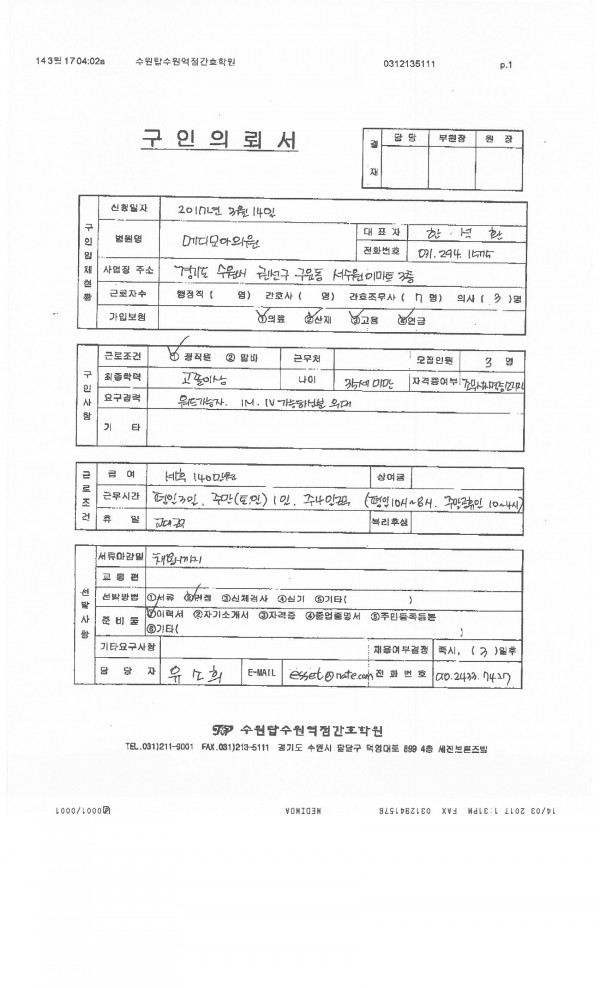 14 3월 17 04:02a 수원탑수원역점간호학원 0312135111 p.1
구 인 의 뢰 서
결 재 담 당 부원장 원 장
구인업체현황
신청일자 2017년 3월 14일
병원명 메디모아의원 대 표 자 한 · 석 환
전화번호 031. 294. 1575
사업장 주소 경기도 수원시 권선구 구운동 서수원이마트 3층
근로자수 행정직 ( 명) 간호사 ( 명) 간호조무사 ( 7 명) 의사 ( 3 )명
가입보험 ①의료 ②산재 ③고용 ④연금
구인사항
근로조건 ① 정직원 ② 알바 근무처 모집인원 3 명
최종학력 고졸이상 나이 35세 미만 자격증여부
요구경력 워드가능자. IM. IV 가능하신분 우대
기 타
근로조건
급 여 세후 140만원 상여금
근무시간 평일3인, 주말(토,일) 1인, 주4일 (평일10시~8시. 주말공휴일 10~4시)
휴 일 복리후생
선발사항
서류마감일 채용시까지
교 통 편
선발방법 ①서류 ②면접 ③신체검사 ④실기 ⑤기타( )
준 비 물 ①이력서 ②자기소개서 ③자격증 ④졸업증명서 ⑤주민등록등본
⑥기타( )
기타요구사항 채용여부결정 즉시, ( 3 )일후
담 당 자 유 소 희 E-MAIL esset@nate.com 전 화 번 호 010. 2433. 7427
수원탑수원역점간호학원
TEL.031)211-9001 FAX.031)213-5111 경기도 수원시 팔달구 덕영대로 899 4층 세진브론즈빌
14/03/2017 1:31PM FAX 0312941578 MEDIMOA 0001/0001